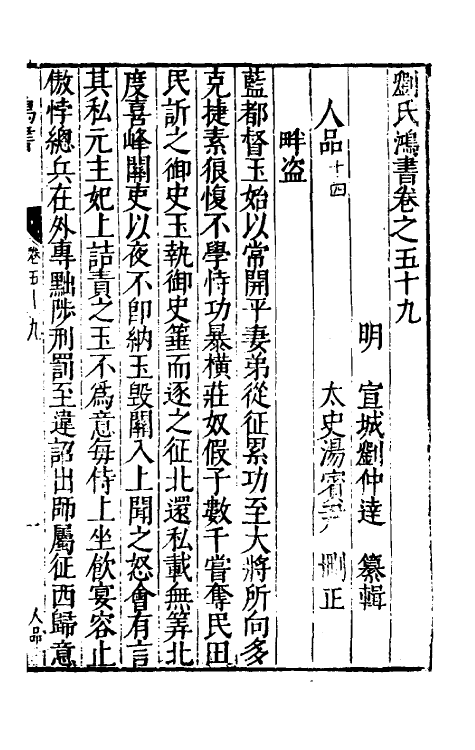 劉氏鴻書卷之五十九
明 宣城劉仲達 纂輯
太史湯賓尹 刪正
人品十四
畔盜
藍都督玉始以常開平妻弟從征累功至大將所向多
克捷素很愎不學恃功暴橫莊奴假子數千嘗奪民田
民訴之御史玉執御史箠而逐之征北還私載無筭北
度喜峰關吏以夜不卽納玉毀關入上聞之怒會有言
其私元主妃上詰責之玉不爲意每侍上坐飲宴容止
傲悖總兵在外專黜陟刑罰至違詔出師屬征西歸意
鴻書
卷五十九
一
人品